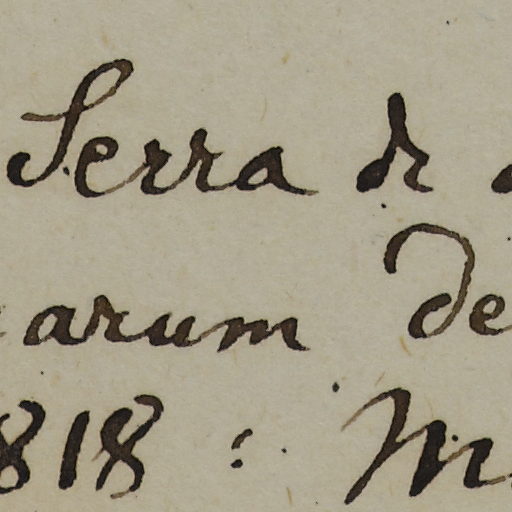 Serra de
arum De
818 : M